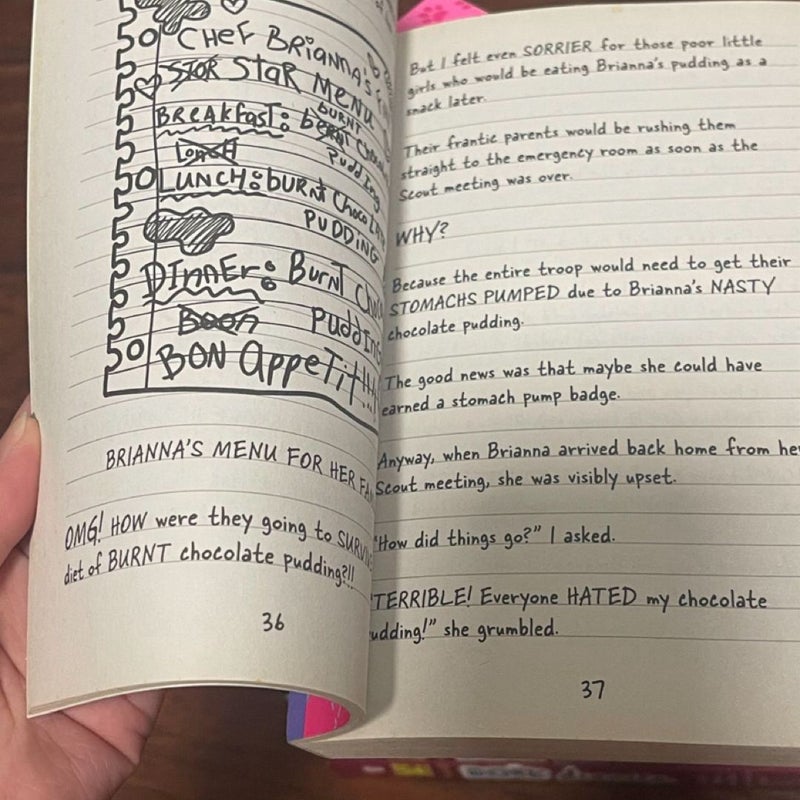 CHEF BRIANNA'S
STOR STAR MENU
BREAKFAST: BURNT
PUDDING
LUNCH: BURNT CHOCOLATE
PUDDING
DINNER: BURNT
PUDDING
BON APPETIT!!!
BRIANNA'S MENU FOR HER
OMG! HOW were they going to SURVIVE
diet of BURNT chocolate pudding?!!
36
But I felt even SORRIER for those poor little
girls who would be eating Brianna's pudding as a
snack later.
Their frantic parents would be rushing them
straight to the emergency room as soon as the
Scout meeting was over.
WHY?
Because the entire troop would need to get their
STOMACHS PUMPED due to Brianna's NASTY
chocolate pudding.
The good news was that maybe she could have
earned a stomach pump badge.
Anyway, when Brianna arrived back home from her
Scout meeting, she was visibly upset.
"How did things go?" I asked.
"TERRIBLE! Everyone HATED my chocolate
udding!" she grumbled.
37